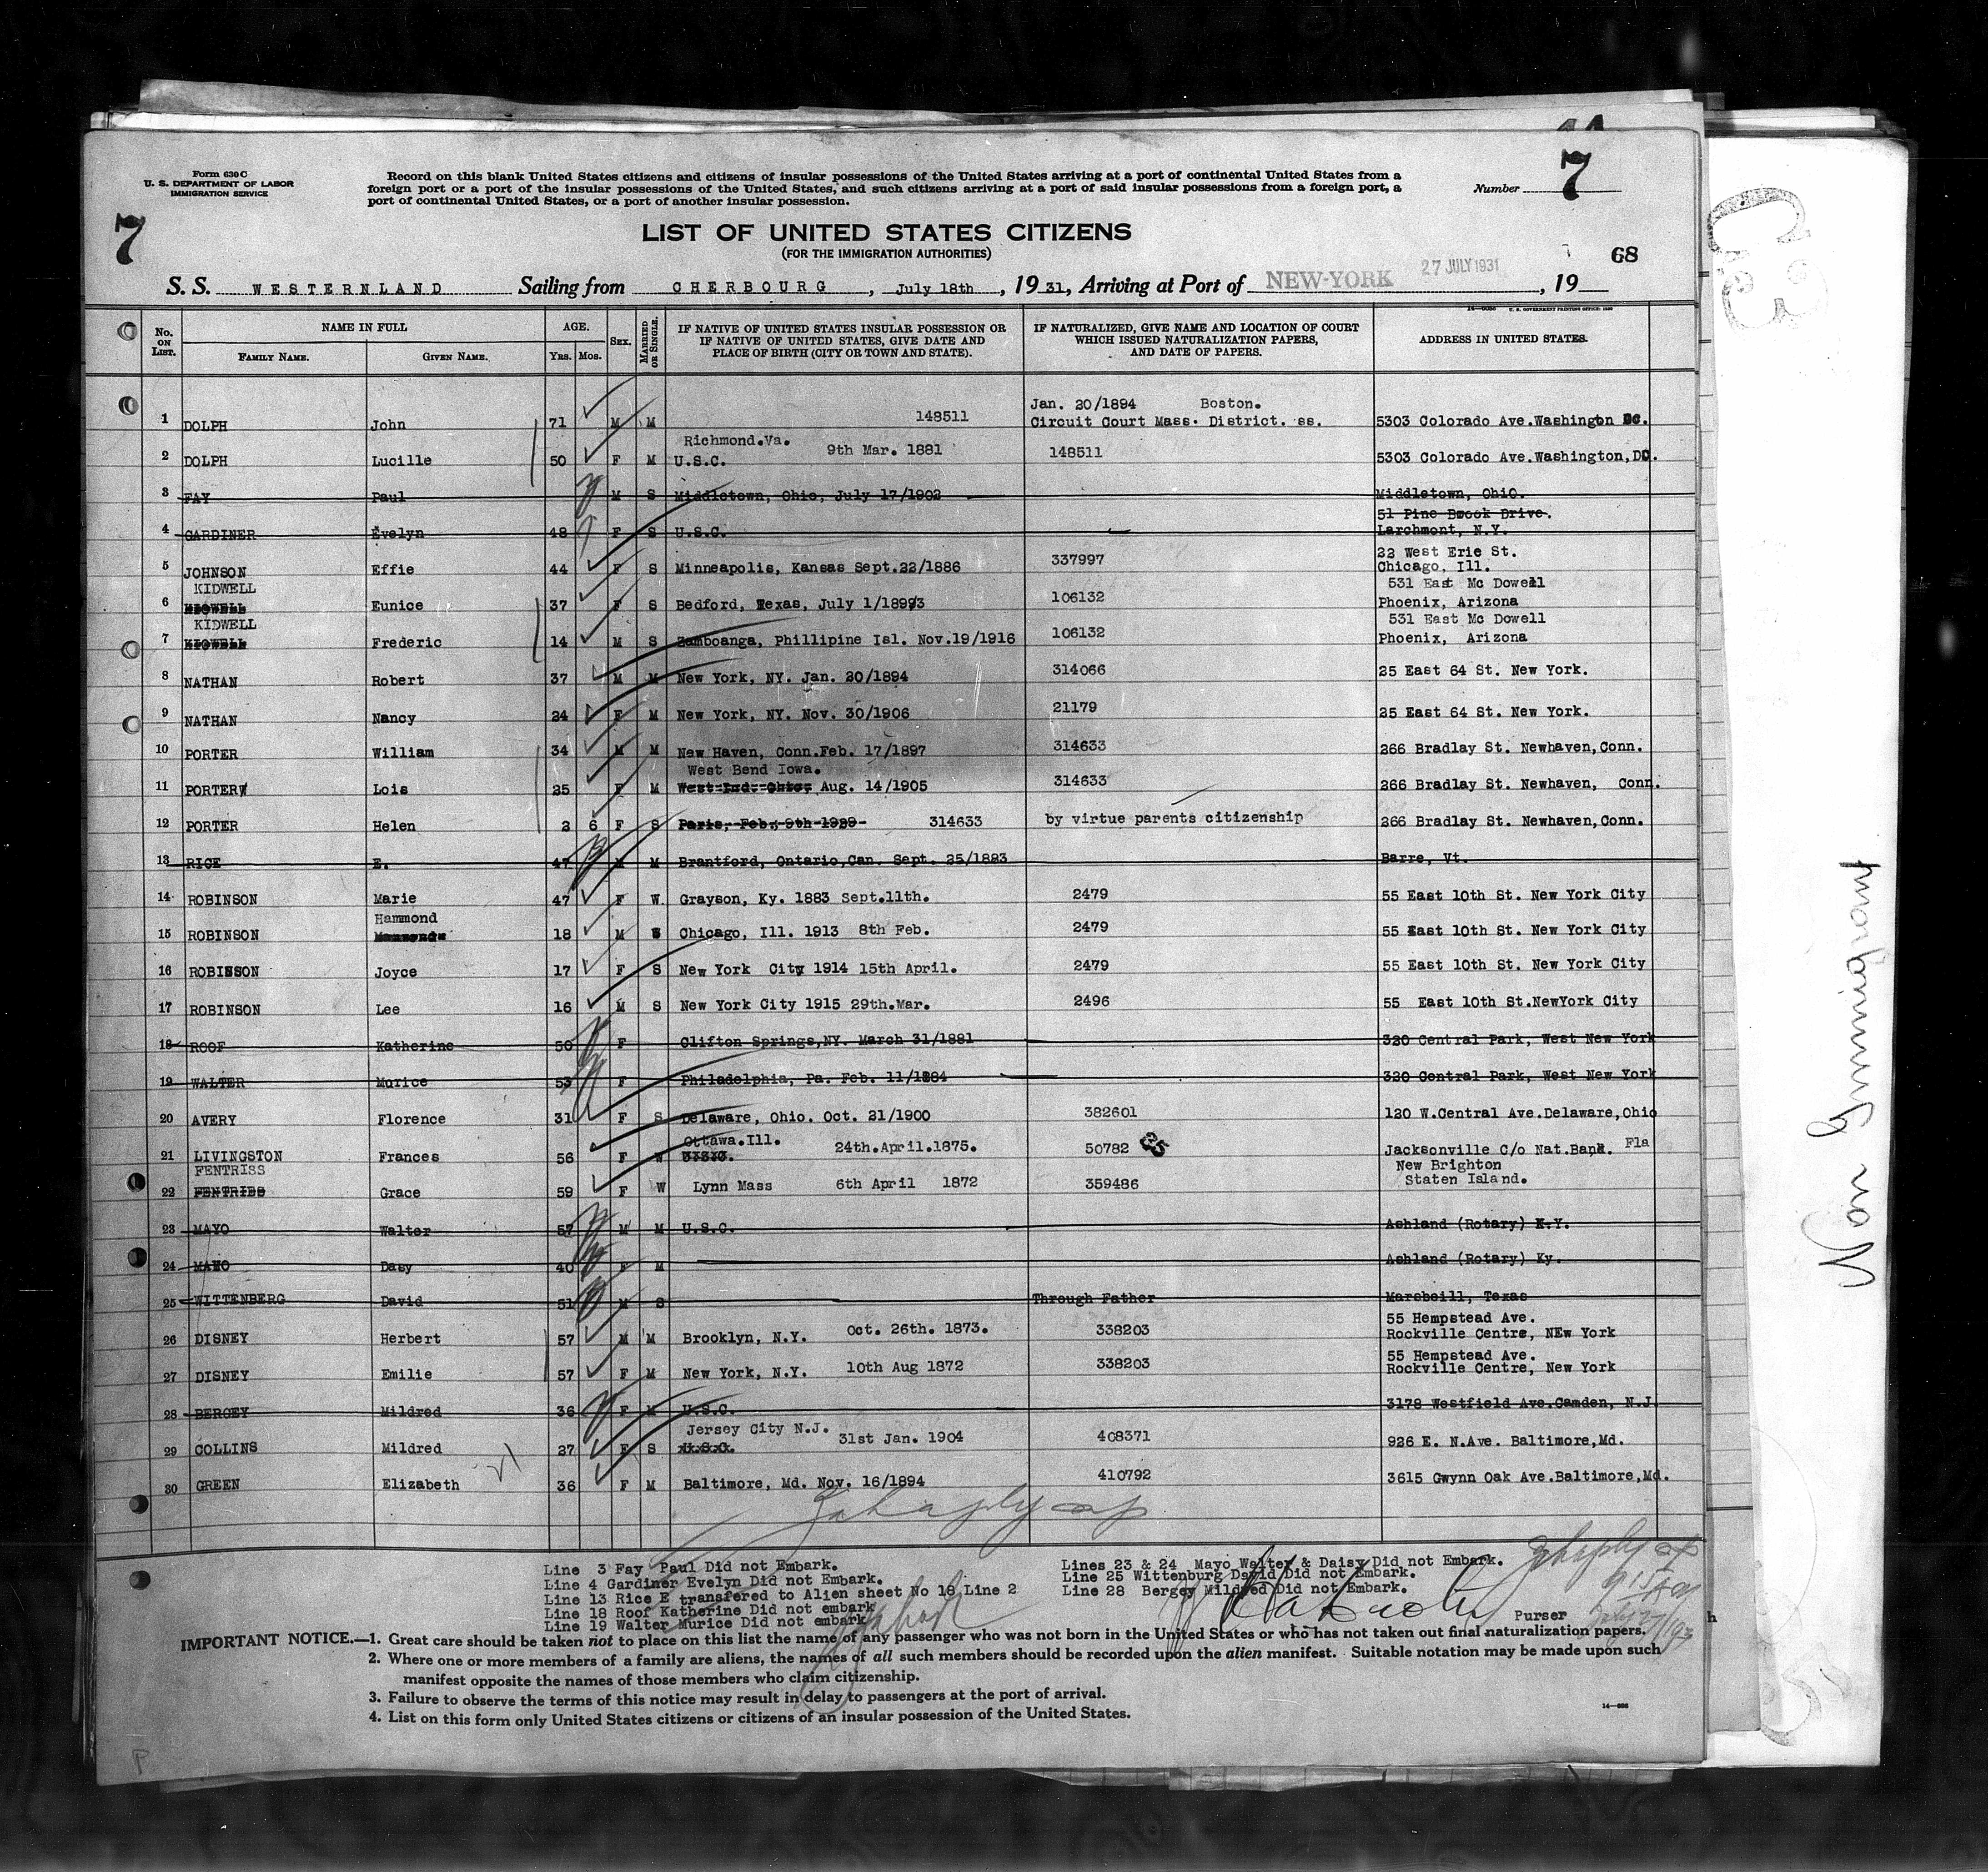 Form 630 C
U. S. DEPARTMENT OF LABOR
IMMIGRATION SERVICE
Record on this blank United States citizens and citizens of insular possessions of the United States arriving at a port of continental United States from a
foreign port or a port of the insular possessions of the United States, and such citizens arriving at a port of said insular possessions from a foreign port, a
port of continental United States, or a port of another insular possession.
Number 7
7
LIST OF UNITED STATES CITIZENS
(FOR THE IMMIGRATION AUTHORITIES)
68
S. S. WESTERNLAND Sailing from CHERBOURG, July 18th, 19 31, Arriving at Port of NEW-YORK 27 JULY 1931, 19
No. ON LIST. NAME IN FULL AGE. SEX. MARRIED OR SINGLE. IF NATIVE OF UNITED STATES INSULAR POSSESSION OR IF NATIVE OF UNITED STATES, GIVE DATE AND PLACE OF BIRTH (CITY OR TOWN AND STATE). IF NATURALIZED, GIVE NAME AND LOCATION OF COURT WHICH ISSUED NATURALIZATION PAPERS, AND DATE OF PAPERS. ADDRESS IN UNITED STATES.
FAMILY NAME. GIVEN NAME. Yrs. Mos.
Jan. 20/1894 Boston.
1 DOLPH John 71 M M 148511 Circuit Court Mass. District. ss. 5303 Colorado Ave.Washington DC.
Richmond.Va. 9th Mar. 1881
2 DOLPH Lucille 50 F M U.S.C. 148511 5303 Colorado Ave.Washington,DC.
3 FAY Paul M S Middletown, Ohio, July 17/1902 Middletown, OhiO.
51 Pine Brook Drive.
4 GARDINER Evelyn 48 F S U.S.C. Larchmont, N.Y.
22 West Erie St.
5 JOHNSON Effie 44 F S Minneapolis, Kansas Sept.22/1886 337997 Chicago, Ill.
KIDWELL 531 East Mc Dowell
6 Eunice 37 F S Bedford, Texas, July 1/1893 106132 Phoenix, Arizona
KIDWELL 531 East Mc Dowell
7 Frederic 14 M S Zamboanga, Phillipine Isl. Nov.19/1916 106132 Phoenix, Arizona
8 NATHAN Robert 37 M M New York, NY. Jan. 20/1894 314066 25 East 64 St. New York.
9 NATHAN Nancy 24 F M New York, NY. Nov. 30/1906 21179 25 East 64 St. New York.
10 PORTER William 34 M M New Haven, Conn.Feb. 17/1897 314633 266 Bradlay St. Newhaven,Conn.
West Bend Iowa.
11 PORTER Lois 25 F M West End. Ohio. Aug. 14/1905 314633 266 Bradlay St. Newhaven, Conn.
12 PORTER Helen 2 6 F S Paris, Feb. 9th 1929 314633 by virtue parents citizenship 266 Bradlay St. Newhaven,Conn.
13 RICE E. 47 M M Brantford, Ontario,Can. Sept. 25/1883 Barre, Vt.
14 ROBINSON Marie 47 F W. Grayson, Ky. 1883 Sept.11th. 2479 55 East 10th St. New York City
Hammond
15 ROBINSON 18 M S Chicago, Ill. 1913 8th Feb. 2479 55 East 10th St. New York City
16 ROBINSON Joyce 17 F S New York City 1914 15th April. 2479 55 East 10th St. New York City
17 ROBINSON Lee 16 M S New York City 1915 29th.Mar. 2496 55 East 10th St.NewYork City
18 ROOF Katherine 50 F Clifton Springs,NY. March 31/1881 320 Central Park, West New York
19 WALTER Murice 53 F Philadelphia, Pa. Feb. 11/1884 320 Central Park, West New York
20 AVERY Florence 31 F S Delaware, Ohio. Oct. 21/1900 382601 120 W.Central Ave.Delaware,Ohio
Ottawa.Ill. 24th.April.1875.
21 LIVINGSTON Frances 56 F W U.S.C. 50782 Jacksonville C/o Nat.Bank. Fla
FENTRISS New Brighton
22 FENTRIES Grace 59 F W Lynn Mass 6th April 1872 359486 Staten Island.
23 MAYO Walter 57 M M U.S.C. Ashland (Rotary) K.Y.
24 MAYO Dasy 40 F M Ashland (Rotary) Ky.
25 WITTENBERG David 51 M S Through Father Marsheill, Texas
55 Hempstead Ave.
26 DISNEY Herbert 57 M M Brooklyn, N.Y. Oct. 26th. 1873. 338203 Rockville Centre, NEw York
55 Hempstead Ave.
27 DISNEY Emilie 57 F M New York, N.Y. 10th Aug 1872 338203 Rockville Centre, New York
28 BERGEY Mildred 36 F M U.S.C. 3178 Westfield Ave.Camden, N.J.
Jersey City N.J. 31st Jan. 1904
29 COLLINS Mildred 27 F S U.S.C. 408371 926 E. N.Ave. Baltimore,Md.
30 GREEN Elizabeth 36 F M Baltimore, Md. Nov. 16/1894 410792 3615 Gwynn Oak Ave.Baltimore,Md.
Line 3 Fay Paul Did not Embark.
Line 4 Gardiner Evelyn Did not Embark.
Line 13 Rice E transfered to Alien sheet No 18 Line 2
Line 18 Roof Katherine Did not embark
Line 19 Walter Murice Did not embark
Lines 23 & 24 Mayo Walter & Daisy Did not Embark.
Line 25 Wittenburg David Did not Embark.
Line 28 Bergey Mildred Did not Embark.
Purser
IMPORTANT NOTICE.—1. Great care should be taken not to place on this list the name of any passenger who was not born in the United States or who has not taken out final naturalization papers.
2. Where one or more members of a family are aliens, the names of all such members should be recorded upon the alien manifest. Suitable notation may be made upon such
manifest opposite the names of those members who claim citizenship.
3. Failure to observe the terms of this notice may result in delay to passengers at the port of arrival.
4. List on this form only United States citizens or citizens of an insular possession of the United States.
Non Immigrant